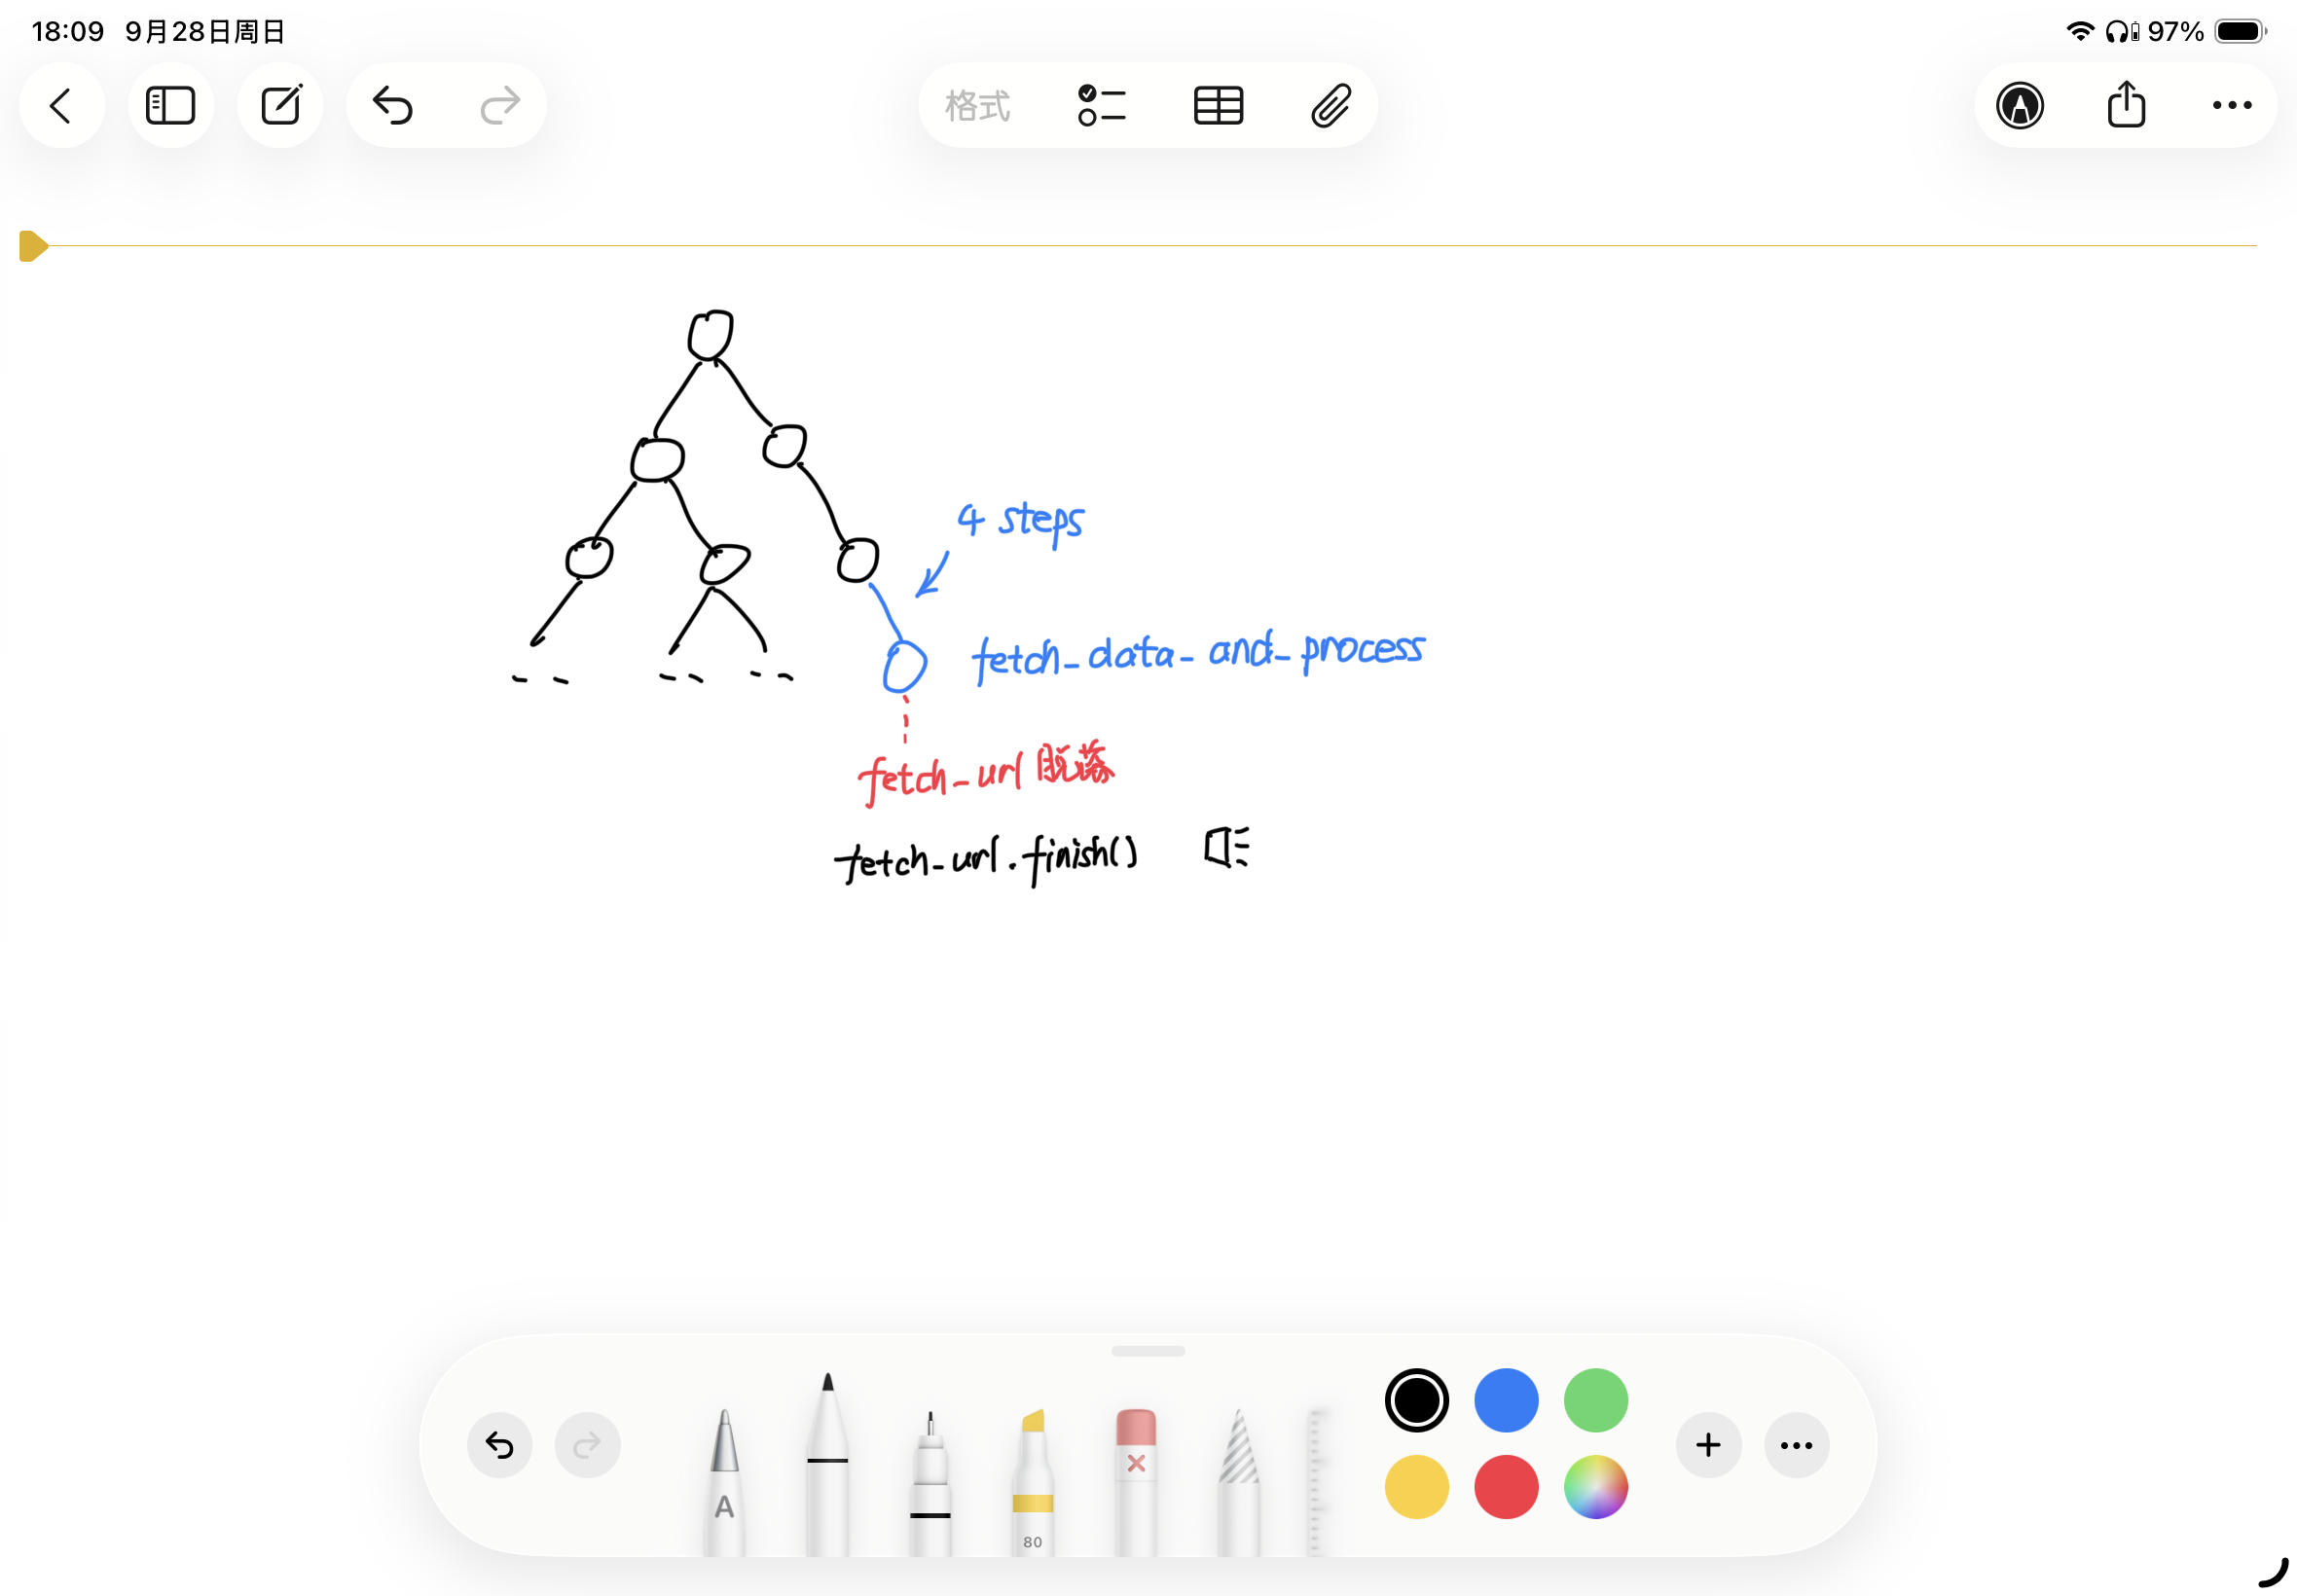 18:09 9月28日周日
97%
格式
4 steps
fetch_data_and_process
fetch_url 脱落
fetch_url.finish()
A
80